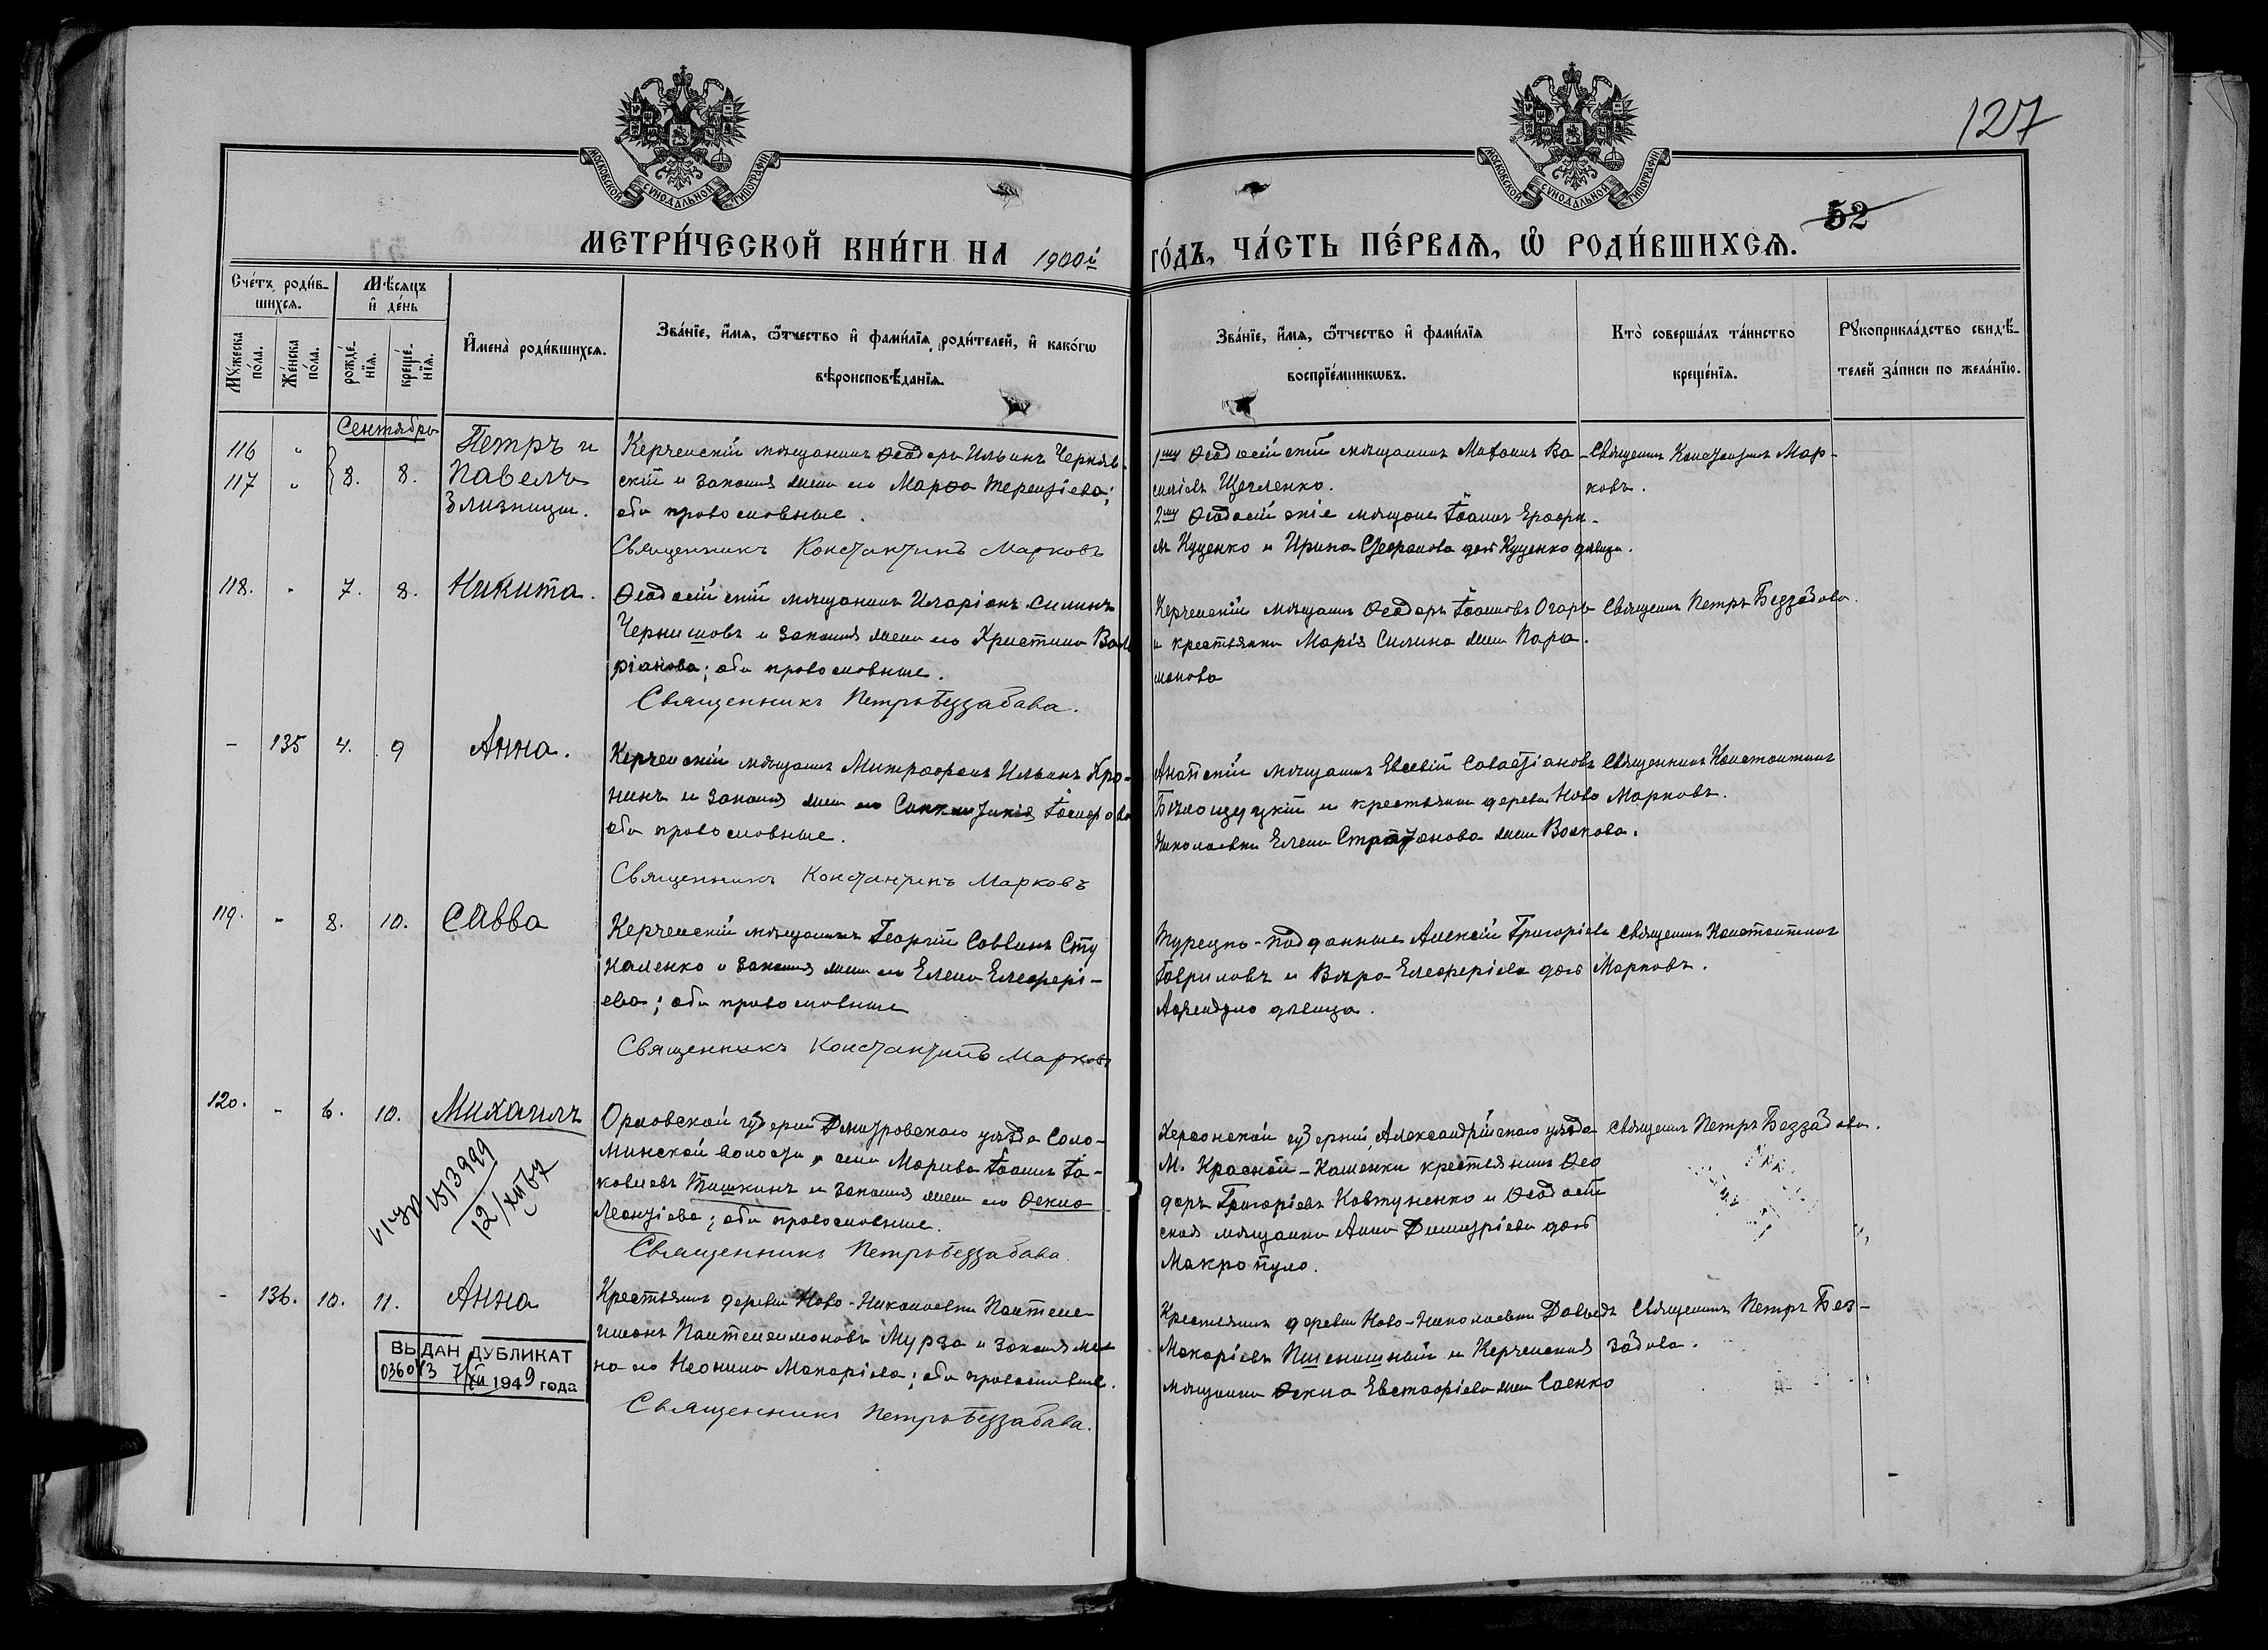 127
МОСКОВСКОЙ СѴНОДАЛЬНОЙ ТИПОГРАФІИ
МОСКОВСКОЙ СѴНОДАЛЬНОЙ ТИПОГРАФІИ
52
МЕТРИ́ЧЕСКОЙ КНИ́ГИ НА 1900й ГО́ДЪ, ЧА́СТЬ ПЕ́РВАЯ, Ѡ҆ РОДИ́ВШИХСЯ.
Сче́тъ роди́в-
шихся.
Мѣ́сяцъ
и҆ де́нь
Мꙋ́жеска
по́ла.
Же́нска
по́ла.
рожде́-
нїя.
креще́-
нїя.
И҆мена̀ роди́вшихся.
Зва́нїе, и҆́мя, ѻ҆́тчество и҆ фами́лїя роди́телей, и҆ како́гѡ
вѣроисповѣ́данїя.
Зва́нїе, и҆́мя, ѻ҆́тчество и҆ фами́лїя
воспрїе́мникѡвъ.
Кто̀ соверша́лъ та́инство
креще́нїя.
Рꙋкоприкла́дство свидѣ́-
телей за́писи по жела́нїю.
Сентябрь
116 "
117 "
8. 8.
Петръ и
Павелъ
близнецы.
Керченскій мѣщанинъ Ѳеодоръ Ильинъ Черняв-
скій и законная жена его Марѳа Терентіева;
оба православные.
Священникъ Константинъ Марковъ
1му Ѳеодосійскій мѣщанинъ Ва-
силіевъ Щегленко.
2му Ѳеодосійскіе мѣщане Іоаннъ
Куценко и Ирина Стефанова дочь Куценко дѣвица.
Священникъ Константинъ Мар-
ковъ.
118. " 7. 8. Никита.
Ѳеодосійскій мѣщанинъ Иларіонъ Силинъ
Чернишовъ и законная жена его Христина Вале
ріанова; оба православные.
Священникъ Петръ Беззабава.
Керченскій мѣщанинъ Ѳеодоръ Іоанновъ Огарь
и крестьянка Марія Силина жена Пара-
монова
Священникъ Петръ Беззабава.
- 135 4. 9 Анна.
Керченскій мѣщанинъ Митрофанъ Ильинъ Кро-
нинъ и законная жена его Синклитикія
оба православные.
Священникъ Константинъ Марковъ
Анапскій мѣщанинъ Евсевій Савастіановъ
и крестьянка деревни Ново
Николаевки Елена жена Волкова.
Священникъ Константинъ
Марковъ.
119. - 8. 10. Савва
Керченскій мѣщанинъ Георгій Саввинъ Сту
каленко и законная жена его Елена Елевфері-
ева; оба православные
Священникъ Константинъ Марковъ
Турецко-подданные Алексій Григоріевъ
Гавриловъ и Вѣра Елевферіева дочь
дѣвица.
Священникъ Константинъ
Марковъ.
120. - 6. 10. Михаилъ
1513999
12/XII 67
Орловской губерніи Дмитровскаго уѣзда Соло-
минской волости, села Іоаннъ Іа-
ковлевъ Тишкинъ и законная жена его Ѳекла
Леонтіева; оба православные.
Священникъ Петръ Беззабава.
Херсонской губерніи, Александрійскаго уѣзда
м. Красной-Каменки крестьянинъ Ѳео
доръ Григоріевъ Ковтуненко и Ѳеодосій
ская мѣщанка Анна Димитріева дочь
Макропуло.
Священникъ Петръ Беззабава.
- 136. 10. 11. Анна
ВЫДАН ДУБЛИКАТ
036013 7/XII 1949 года
Крестьянинъ деревни Ново-Николаевки Пантеле-
имонъ Пантелеимоновъ Мурза и законная же
на его Неонила Макаріева; оба православные.
Священникъ Петръ Беззабава.
Крестьянинъ деревни Ново-Николаевки Давыдъ
Макаріевъ Пшенишный и Керченская
мѣщанка Ѳекла Евстафіева жена Саенко
Священникъ Петръ Без-
забава.